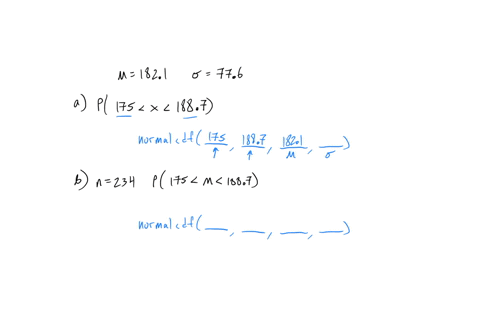 μ = 182.1 σ = 77.6
a) P( 175 < x < 188.7)
normalcdf( 175 , 188.7 , 182.1 , ___ )
↑ ↑ μ σ
b) n = 234 P( 175 < M < 188.7)
normalcdf( ___ , ___ , ___ , ___ )